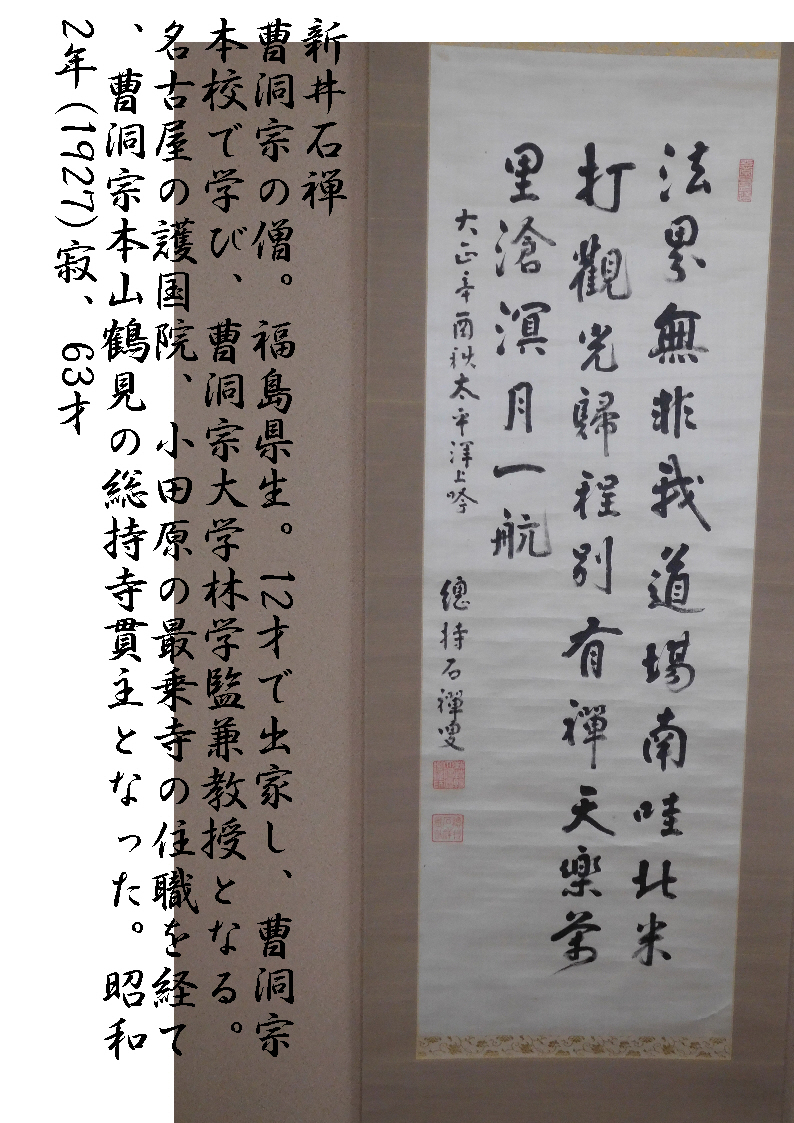 法界無非我道場南哇北米
打觀光歸程別有禪天樂萬
里滄溟月一航
大正辛酉秋太平洋上吟 總持石禪叟
新井石禅
曹洞宗の僧。福島県生。12才で出家し、曹洞宗
本校で学び、曹洞宗大学林学監兼教授となる。
名古屋の護国院、小田原の最乗寺の住職を経て
、曹洞宗本山鶴見の総持寺貫主となった。昭和
2年(1927)寂、63才